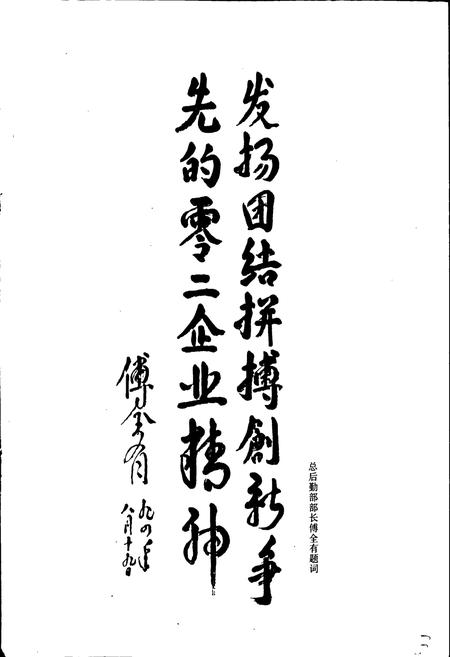 发扬团结拼搏創新争
先的零二企业精神
傅全有
九四年
八月十九日
总后勤部部长傅全有题词